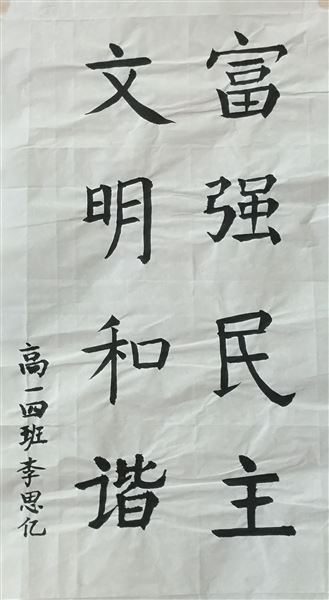 富强民主
文明和谐
高一四班李思亿